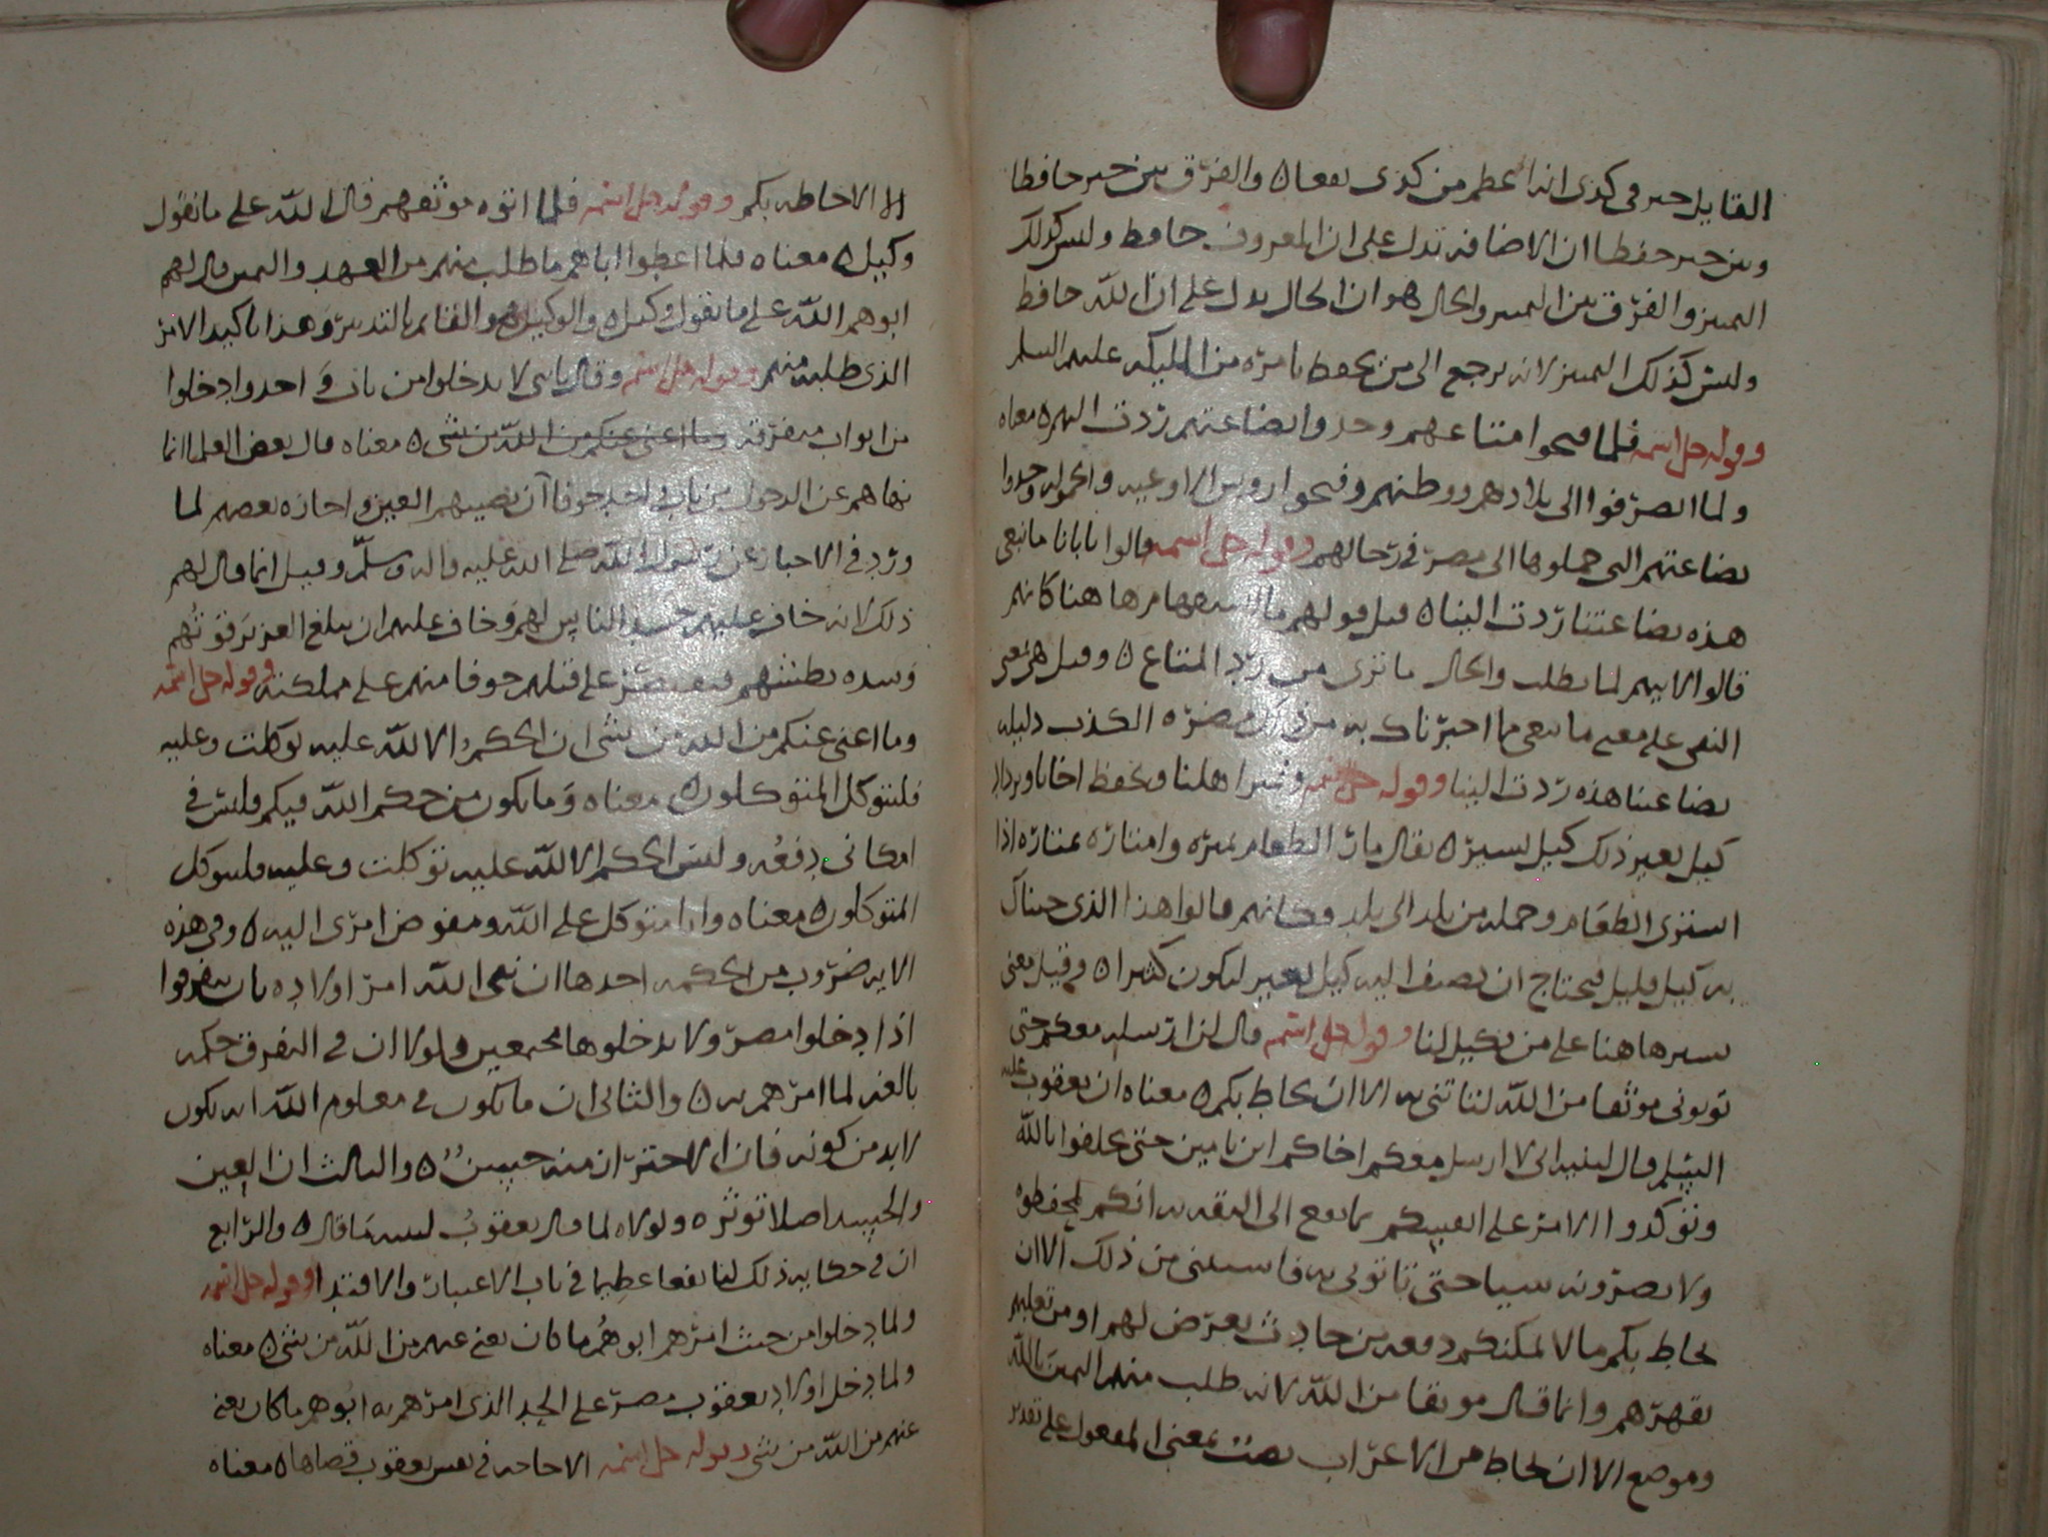 القايل خير في كذي انه اعظم من كذي نفعا ه والفرق بين خير حافظا
وبين خير حفظا ان الاضافه تدل على ان المعروف حافظ وليس كذلك
التمييز والفرق بين التمييز والحال هو ان الحال يدل على ان الله حافظ
وليس كذلك التمييز لانه يرجع الى من يحفظ بامره من المليكه عليهم السلم
وقوله جل اسمه فلما فتحوا متاعهم وجدوا بضاعتهم ردت اليهم ه معناه
ولما انصرفوا الى بلادهم ووطنهم وفتحوا روس الاوعيه والحموله وجدوا
بضاعتهم التي حملوها الى مصر في رحالهم وقوله جل اسمه قالوا يابانا ما نبغي
هذه بضاعتنا ردت الينا ه قيل قولهم ما استفهام هاهنا كانهم
قالوا لابيهم لما نطلب والحال ما ترى من رد المتاع ه وقيل هي بمعنى
النفي على معنى ما نبغي بما اخبرناك به من مصره الكذب دليله
بضاعتنا هذه ردت الينا وقوله جل اسمه ونمير اهلنا ونحفظ اخانا ونزداد
كيل بعير ذلك كيل يسير ه يقال مار الطعام يميره وامتاره يمتاره اذا
اشترى الطعام وحمله من بلد الى بلد وكانهم قالوا هذا الذي جيناك
به كيل قليل فيحتاج ان نضيف اليه كيل بعير ليكون كثيرا ه وقيل يعني
يسير هاهنا على من يكيل لنا وقوله جل اسمه قال لن ارسله معكم حتى
توتوني موثقا من الله لتاتنني به الا ان يحاط بكم ه معناه ان يعقوب عليه
السلم قال لبنيه اني لا ارسل معكم اخاكم ابن يامين حتى تحلفوا بالله
وتوكدوا الامر على انفسكم بما يقع الى الثقه به انكم تحفظوه
ولا تضرونه سيا حتى تاتوني به فاستثنى من ذلك الا ان
يحاط بكم ما لا يمكنكم دفعه من حادث يعرض لهم او من تغلبهم
بقهرهم وانما قال موثقا من الله لانه طلب منهم اليمين بالله
وموضع الا ان يحاط من الاعراب نصب بمعنى المفعول على تقدير
الا الاحاطه بكم وقوله جل اسمه فلما اتوه موثقهم قال الله على ما نقول
وكيل ه معناه فلما اعطوا اباهم ما طلب منهم من العهد واليمين قال لهم
ابوهم الله على ما نقول وكيل ه والوكيل هو القايم بالتدبير وهذا تاكيد الامر
الذي طلبه منهم وقوله جل اسمه وقال يابني لا تدخلوا من باب واحد وادخلوا
من ابواب متفرقه وما اغني عنكم من الله من شي ه معناه قال بعض العلما انما
نهاهم عن الدخول من باب واحد خوفا ان تصيبهم العين واجازه بعضهم لما
ورد في الاخبار عن رسول الله صلى الله عليه واله وسلم وقيل انما قال لهم
ذلك لانه خاف عليهم حسد الناس لهم وخاف عليهم ان يبلغ العزيز قوتهم
وشده بطشهم على قتلهم خوفا منهم على مملكته وقوله جل اسمه
وما اغني عنكم من الله من شي ان الحكم الا لله عليه توكلت وعليه
فليتوكل المتوكلون ه معناه وما يكون من حكم الله فيكم فليس في
امكاني دفعه وليس الحكم الا لله عليه توكلت وعليه فليتوكل
المتوكلون ه معناه وانا متوكل على الله ومفوض امري اليه ه وفي هذه
الايه ضروب من الحكمه احدها ان نبي الله امر اولاده بان يتفرقوا
اذا دخلوا مصر ولا يدخلوها مجتمعين ولولا ان في التفرق حكمه
بالغه لما امرهم به ه والثاني ان ما يكون في معلوم الله انه يكون
لابد من كونه فان الاحتراز منه حسن ه والثالث ان العين
اصلا توثره ولولاه لما قال يعقوب لبنيه ما قال ه والرابع
ان في حكايه ذلك لنا نفعا عظيما في باب الاعتبار والاقتدا وقوله جل اسمه
ولما دخلوا من حيث امرهم ابوهم ما كان يغني عنهم من الله من شي ه معناه
ولما دخل اولاد يعقوب مصر على الحد الذي امرهم به ابوهم ما كان يغني
عنهم من الله من شي وقوله جل اسمه الا حاجه في نفس يعقوب قضاها ه معناه